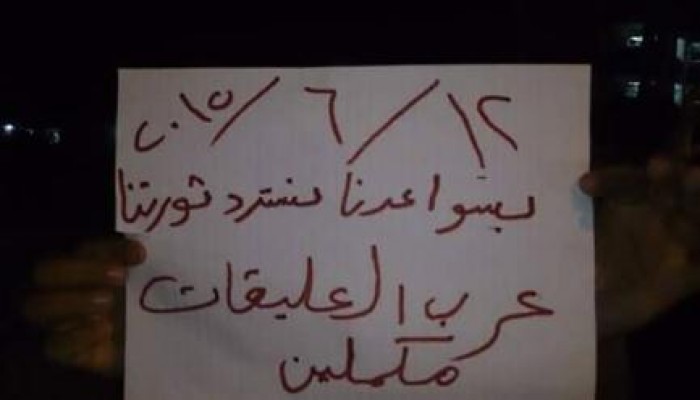 ١٢/٦/٢٠١٥
بسواعدنا نسترد ثورتنا
عرب العليقات
مكملين